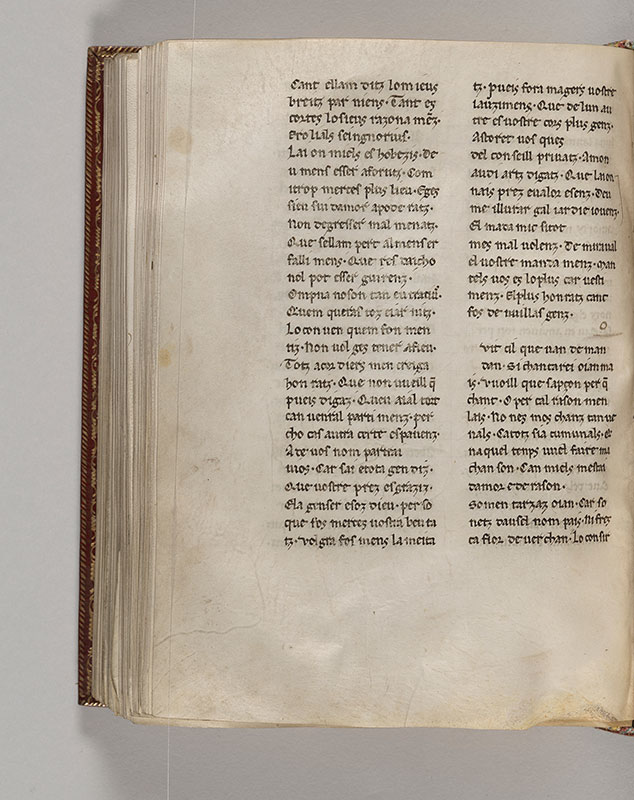 Cant ellam ditz lom ieus
breitz par niens. Tant es
cortes losieus razona mẽz.
Ero lials seingnorius.
Lai on miels es hobezis. De
u mens esser aforutz. Com
itrop merces plus lieu. Eges
sieu sui damor apode ratz.
Non degresser mal menatz.
Que sellam pert almens er
falli mens. Que res daicho
nol pot esser guirenz.
Ompna noson tan
Quem queras coz clar nitz.
Lo con uen quem fon men
tiz. Non uol ges tener afieu.
Totz acor diers men creiga
hon ratz. Que non uueill q̃
pueis digatz. Queu aial tort
can uenral parti menz. per
cho cas aura certz espauenz.
A te vos nom partrai
uius. Car sai etota gen diz.
Que uostre prez esgrazitz.
Ela genser esoz dieu. per so
que fos merces uostra beu ta
tz. volgra fos mens la meita
tz. pueis fora magers uostre
iauzimens. Que de lun au
tre es uostre cors plus genz.
Astoret uos ques
del conseill priuatz. Amon
audi artz digatz. Que laion
nais prez eualor esenz. Deu
me illurar gal iar die iouenz.
El mada mic sitot
mes mal uolenz. De miraual
el uostre manta menz. Man
tels uos es loplus car uesti
menz. Elplus hon ratz cant
fos de uuillas genz.
o
vit cil que uan de man
dan. Si chantarei oian ma
is. vuoill que sapcon per q̃
chant. O per cal rason men
lais. No nes mos chanz tan ue
nals. Catotz sia cumunals. E
na quel temps uuel faire ma
chan son. Can miels mesta
damor e de rason.
Somen tarzaz oian. Car so
netz dausel nom pais. Ni fres
ca flor de uer chan. Lo consir